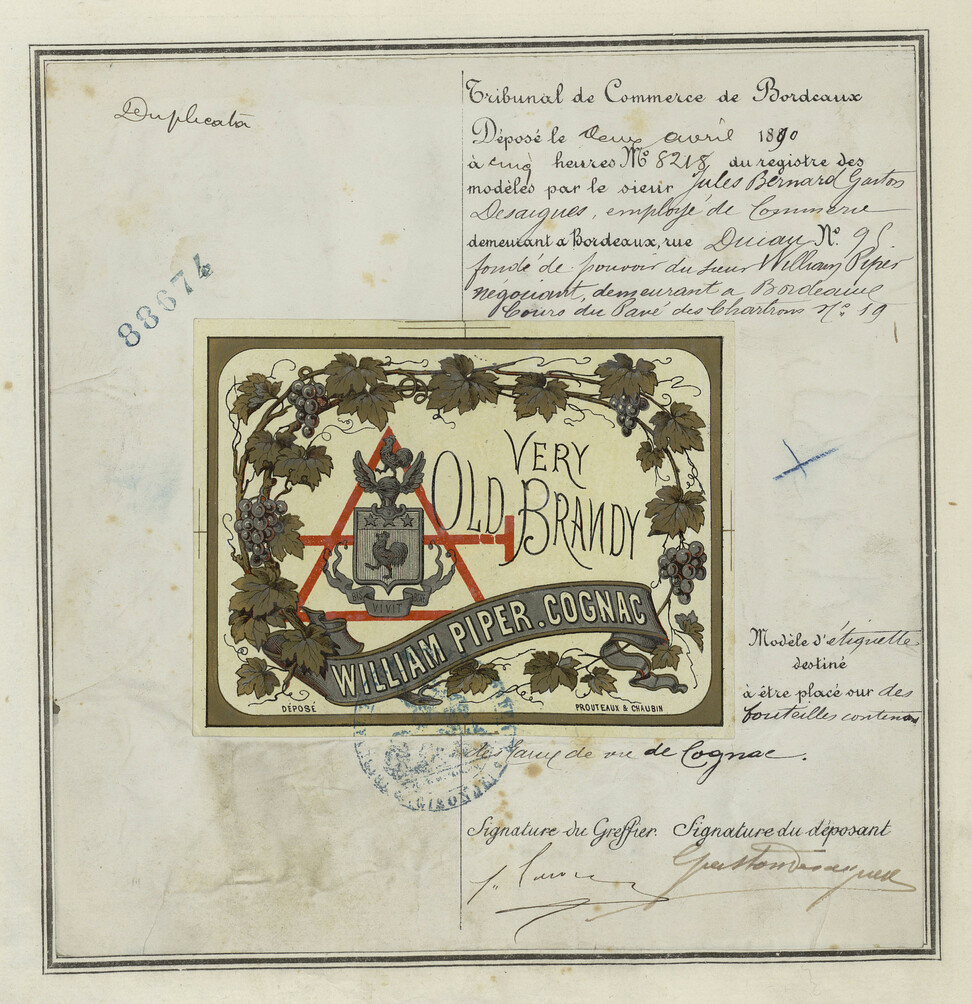 Duplicata
Tribunal de Commerce de Bordeaux
Déposé le deux avril 1890
à cinq heures Nº 8218 du registre des
modèles par le sieur Jules Bernard Gaston
Desaigues, employé de Commerce
demeurant a Bordeaux, rue Nº 95
fondé de pouvoir du sieur William Piper
négociant, demeurant a Bordeaux
Cours du Pavé des Chartrons Nº 19
88674
VERY
OLD BRANDY
BIS VIVIT
WILLIAM PIPER. COGNAC
DÉPOSÉ
PROUTEAUX & CHAUBIN
Modèle d'étiquette
destiné
à être placé sur des
bouteilles contenant
de vie de Cognac.
GIRONDE
Signature du Greffier. Signature du déposant